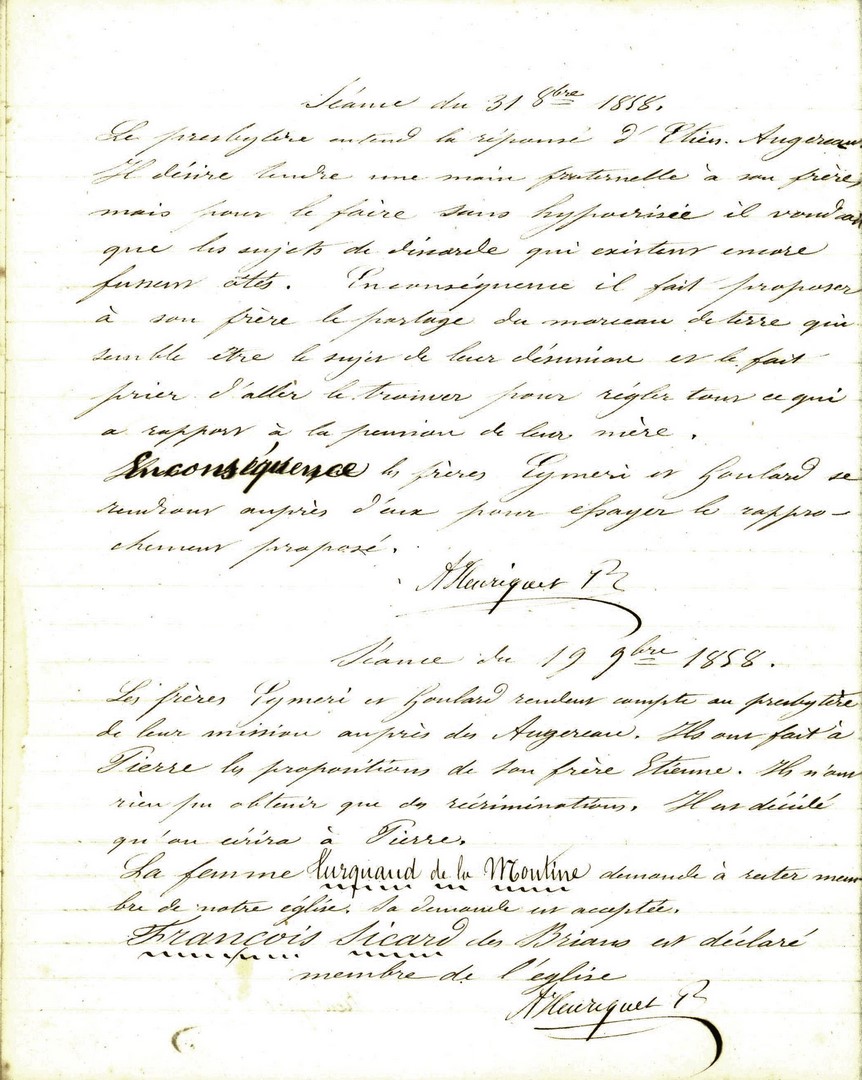 Séance du 31 8bre 1858.
Le presbytère entend la réponse d'Etien. Augereau.
Il désire tendre une main fraternelle à son frère,
mais pour le faire sans hypocrisée il voudrait
que les sujets de discorde qui existent encore
fussent ôtés. Enconséquence il fait proposer
à son frère le partage du morceau de terre qui
semble être le sujet de leur désunion et le fait
prier d'aller le trouver pour régler tout ce qui
a rapport à la pension de leur mère.
Enconséquence les frères Eymeri et Goulard se
rendront auprès d'eux pour essayer le rappro-
chement proposé.
A Henriquet Pr
Séance du 19 9bre 1858.
Les frères Eymeri et Goulard rendent compte au presbytère
de leur mission auprès des Augereau. Ils ont fait à
Pierre les propositions de son frère Etienne. Ils n'ont
rien pu obtenir que des récriminations. Il est décidé
qu'on écrira à Pierre.
La femme Turquaud de la Mouline demande à rester mem
bre de notre église. Sa demande est acceptée.
François Sicard des Brians est déclaré
membre de l'église
A Henriquet Pr